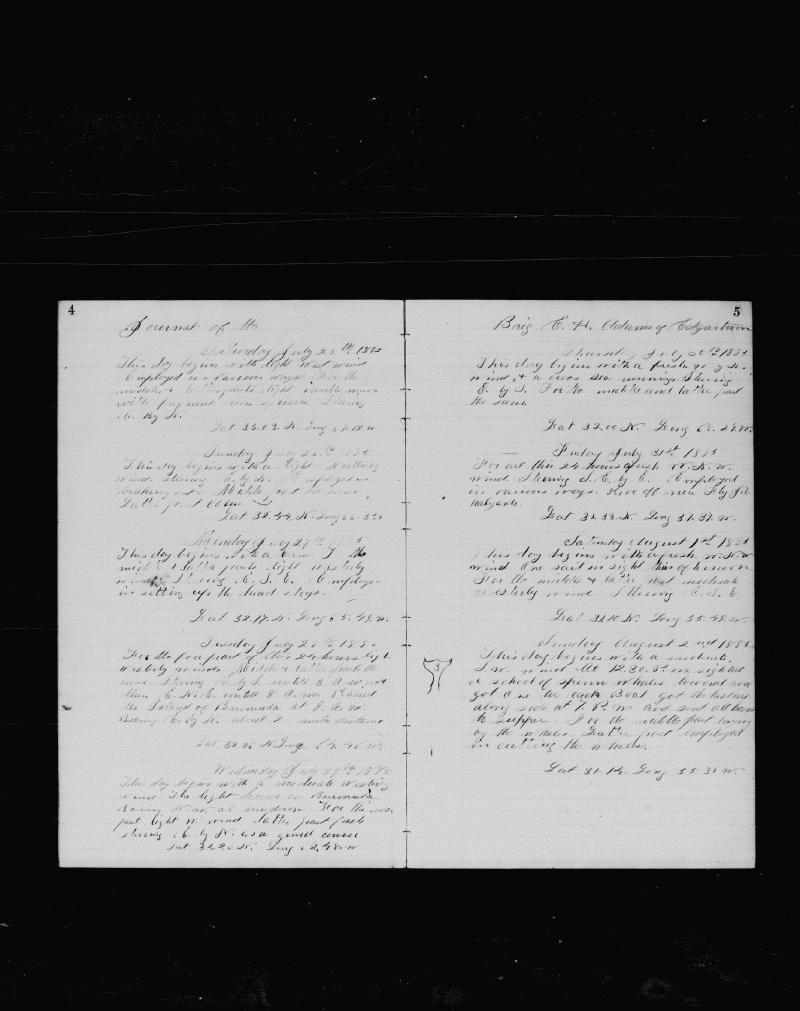 4
Journal of the
Saturday July 25th 1885
This day begins with light West wind
Employed in various ways. For the
middle &
with frequent rain squalls. Steering
E. By S.
Lat 33.03. N. Long
Sunday July 26th 1885
This day begins with a light
wind. steering E. by N. Employed in
breaking out. Middle part the same
Latter part calm
Lat 32.44. N. Long 66.
Monday July 27th 1885
This day begins with a calm. For the
middle & latter parts light westerly
winds. Steering E. S. E. Employed
in setting up the head stays.
Lat 32.17. N. Long 65.48. W.
Tuesday July 28th 1885
For the fore part of this 24 hours light
westerly winds. Middle & latter parts the
same. Steering E. by S. untill 3 A.M. and
then E. N. E. untill 8 A.M. Raised
the Island of Bermuda at 9. A.M.
Bearing E. by N. about 20 miles distance
Lat 32.06 N. Long 64.46 W.
Wednesday July 29th 1885
This day began with a moderate westerly
wind. The light house on Bermuda
Bearing N.W. at sundown. For the middle
part light W. wind. latter part fresh
steering E. by N. as a good course
Lat 32.20 N. Long 62.48 W
5
Brig E. H. Adams of Edgartown
Thursday July 30th 1885
This day begins with a fresh
wind & a cross sea running. Steering
E. by S. For the middle and latter part
the same.
Lat 32.00 N. Long 60.29. W.
Friday July 31st 1885
For all this 24 hours fresh W. N. W.
wind. Steering S. E. by E. Employed
in various ways. Hove off new
Lat 31.33. N. Long 57.37. W.
Saturday August 1st 1885
This day begins with a fresh W. N. W
wind. One sail in sight this afternoon
For the middle & latter part moderate
westerly wind. Steering E. S. E
Lat 31.10 N. Long 55.48. W.
Sunday August 2nd 1885
This day begins with a moderate
S. W. wind. At 12.30. P. M. sighted
a school of sperm whales lowered and
got one to each Boat got the last one
along side at 7. P. M. and sent all hands
to supper. For the middle part laying
by the whales. Latter part employed
in cutting the whales.
3
Lat 31.14. Long 55.31 W.